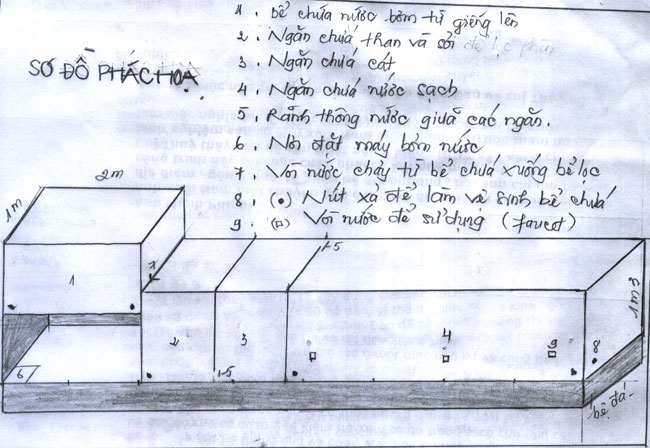 SƠ ĐỒ PHÁC HOẠ
1. bể chứa nước bơm từ giếng lên
2. Ngăn chứá than và sỏi để lọc phèn
3. Ngăn chứá cát
4. Ngăn chứá nước sạch
5. Rãnh thông nước giữa các ngăn.
6. Nơi đặt máy bơm nước
7. Vòi nước chảy từ bể chứá xuống bể lọc
8. (•) Nút xả để làm vệ sinh bể chứá
9. (□) Vòi nước để sử dụng (faucet)
2m
1m
1
7
1-5
2
3
1-5
4
9
8
6
bệ đá